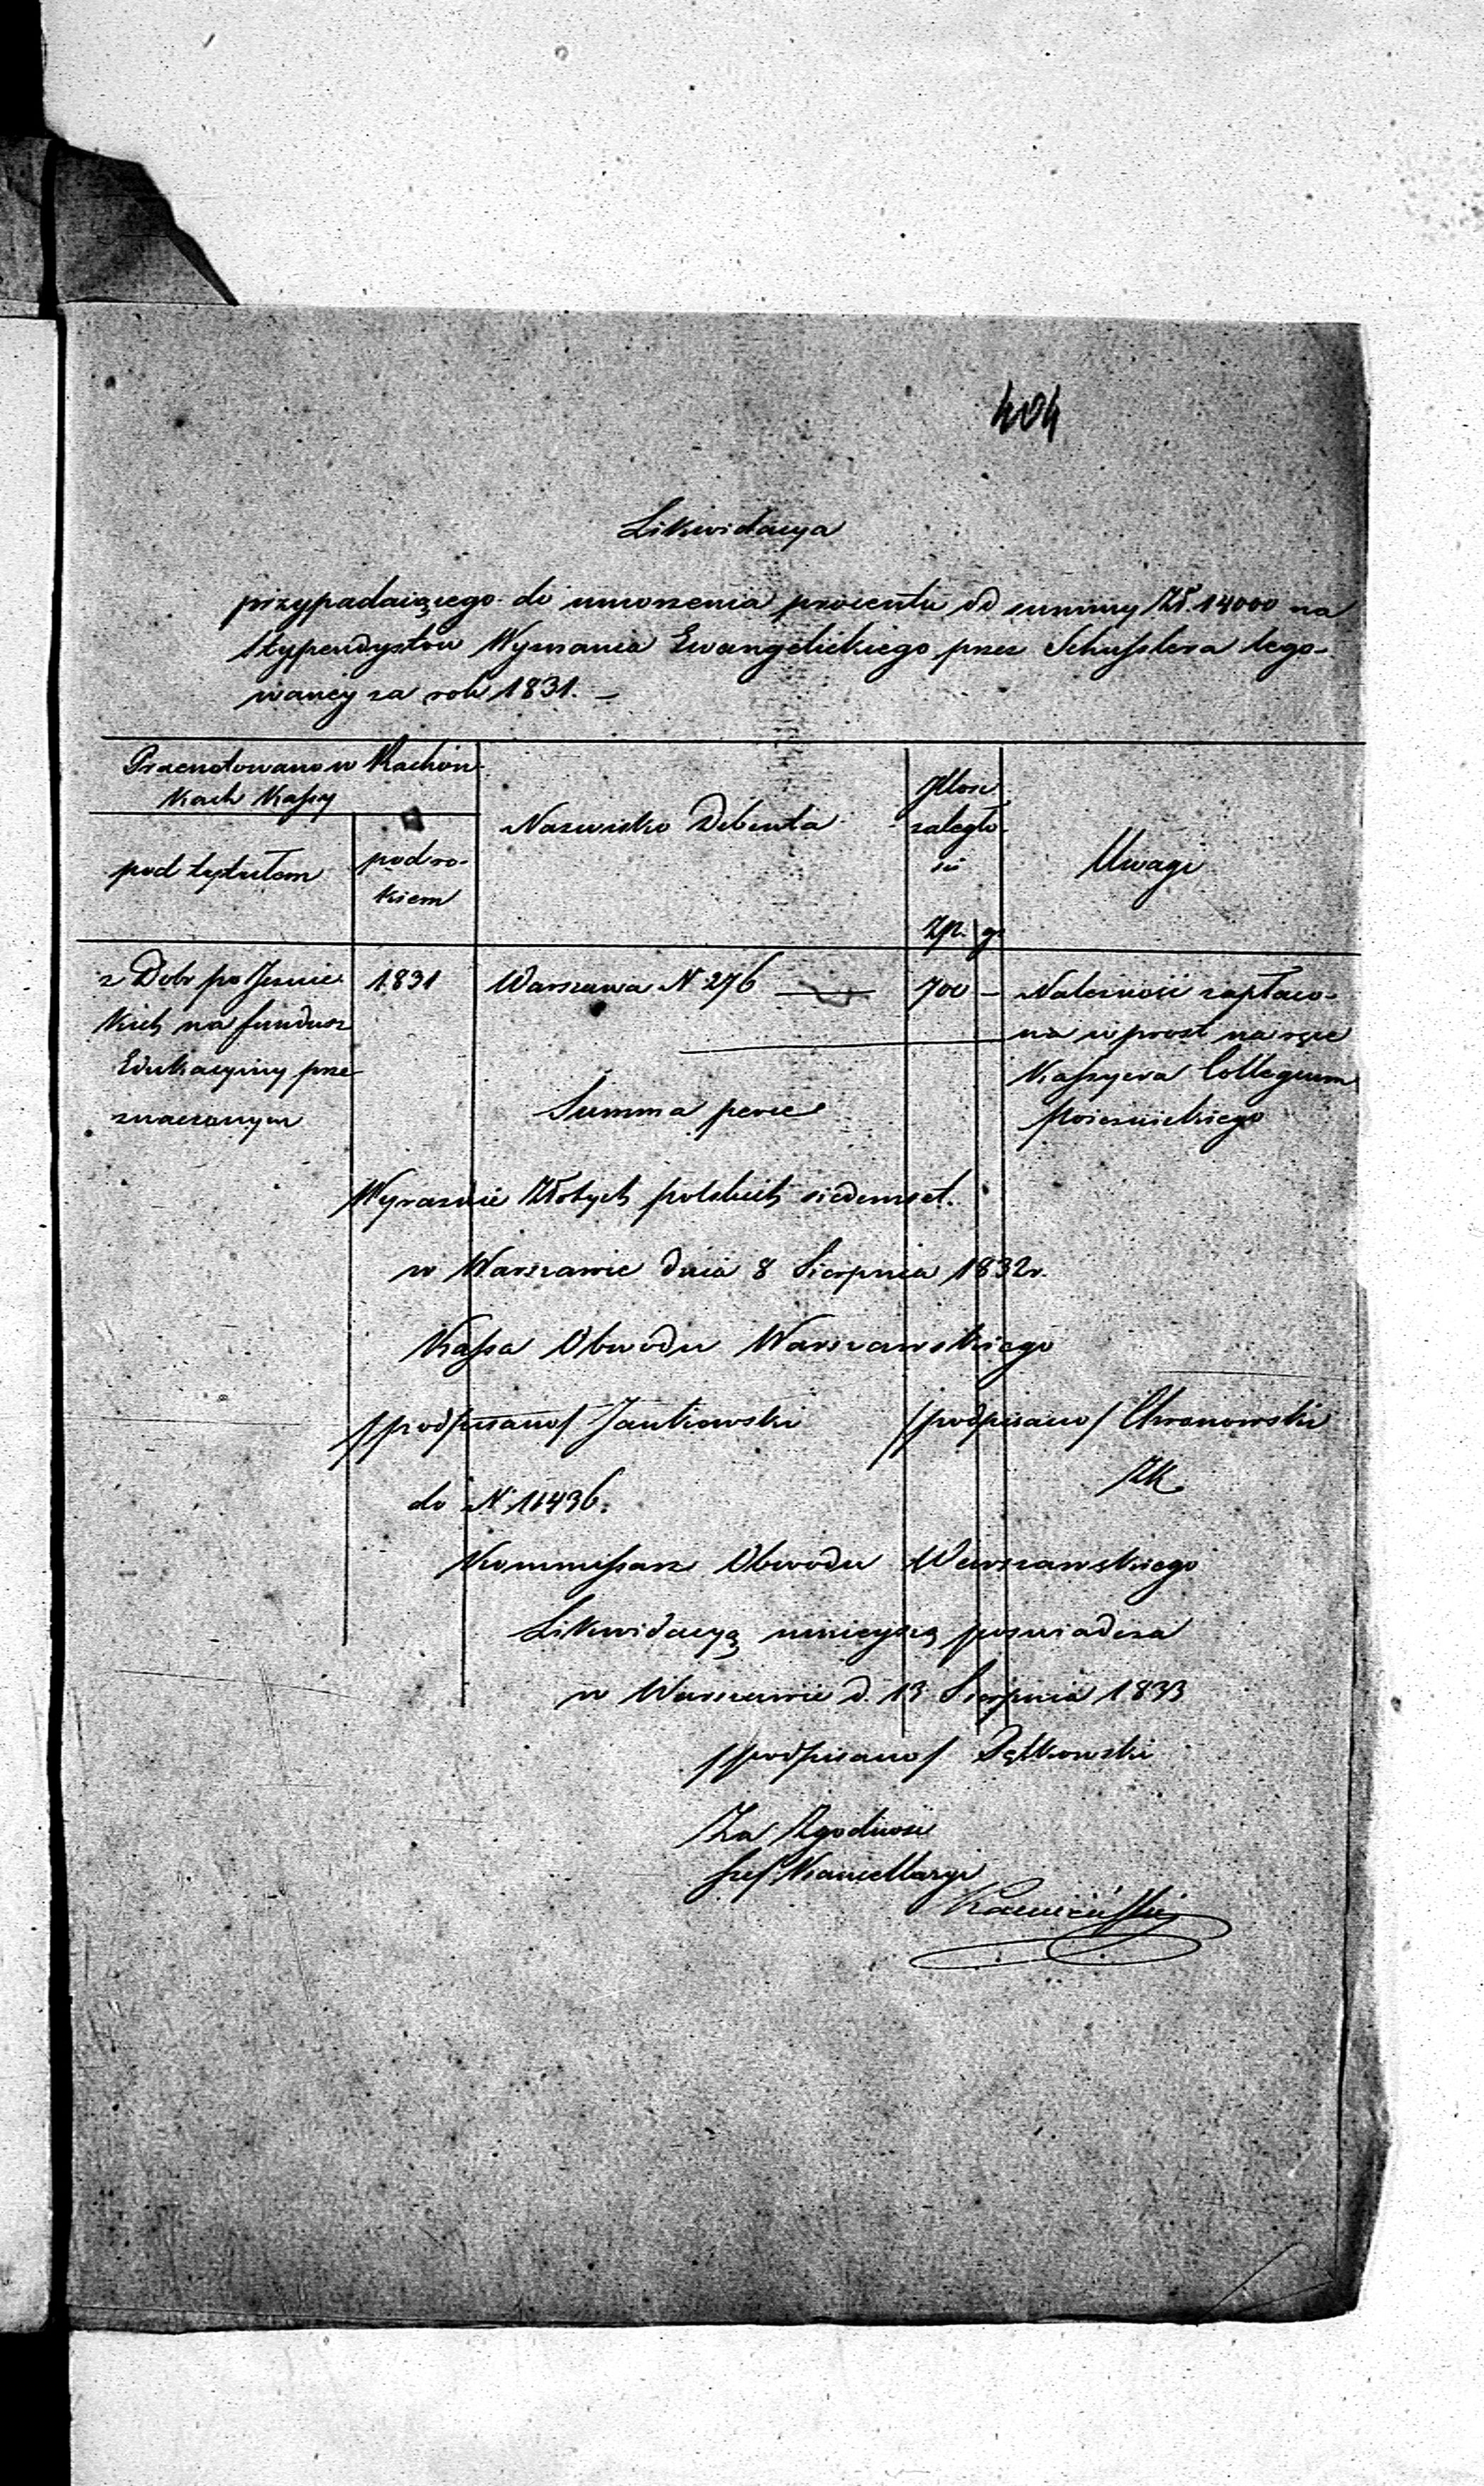 404
Likwidacya
przypadaiącego do umorzenia procentu od summy Zł. 14000 na
Stypendystów Wyznania Ewangelickiego przez Schusslera lego-
waney za rok 1831. —
Przenotowano w Rachun
kach Kassy
pod tytułem
pod ro-
kiem
Nazwisko Debenta
Ilosc
zaległo-
sci
Zp. gr
Uwagi
z Dobr poJezuic
kich na fundusz
Edukacyiny prze
znaczonym
1831
Warszawa N. 276 —
700 —
Należność zapłaco-
na wprost na ręce
Kassyera Collegium
Summa perse
Wyraznie Złotych polskich siedemset.
w Warszawie dnia 8 Sierpnia 1832 r.
Kassa Obwodu Warszawskiego
/podpisano/ Jankowski /podpisano/ Chronowski
ZK
do N. 11436.
Kommissarz Obwodu Warszawskiego
Likwidacyą ninieyszą poswiadcza
w Warszawie d. 13 Sierpnia 1833
/podpisano/
Za Zgodnosc
Szef Kancellaryi
Kamiński